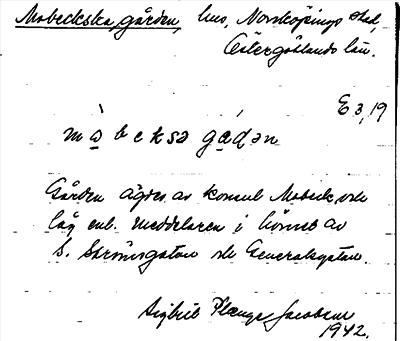 Mobeckska gården, hus, Norrköpings stad,
Östergötlands län.
E 3,19
mobeksə gadən
Gården ägdes av konsul Mobeck och
låg enl. meddelaren i hörnet av
S. Strömsgatan och Generalsgatan.
Sigbrit Plænge Jacobson
1942.